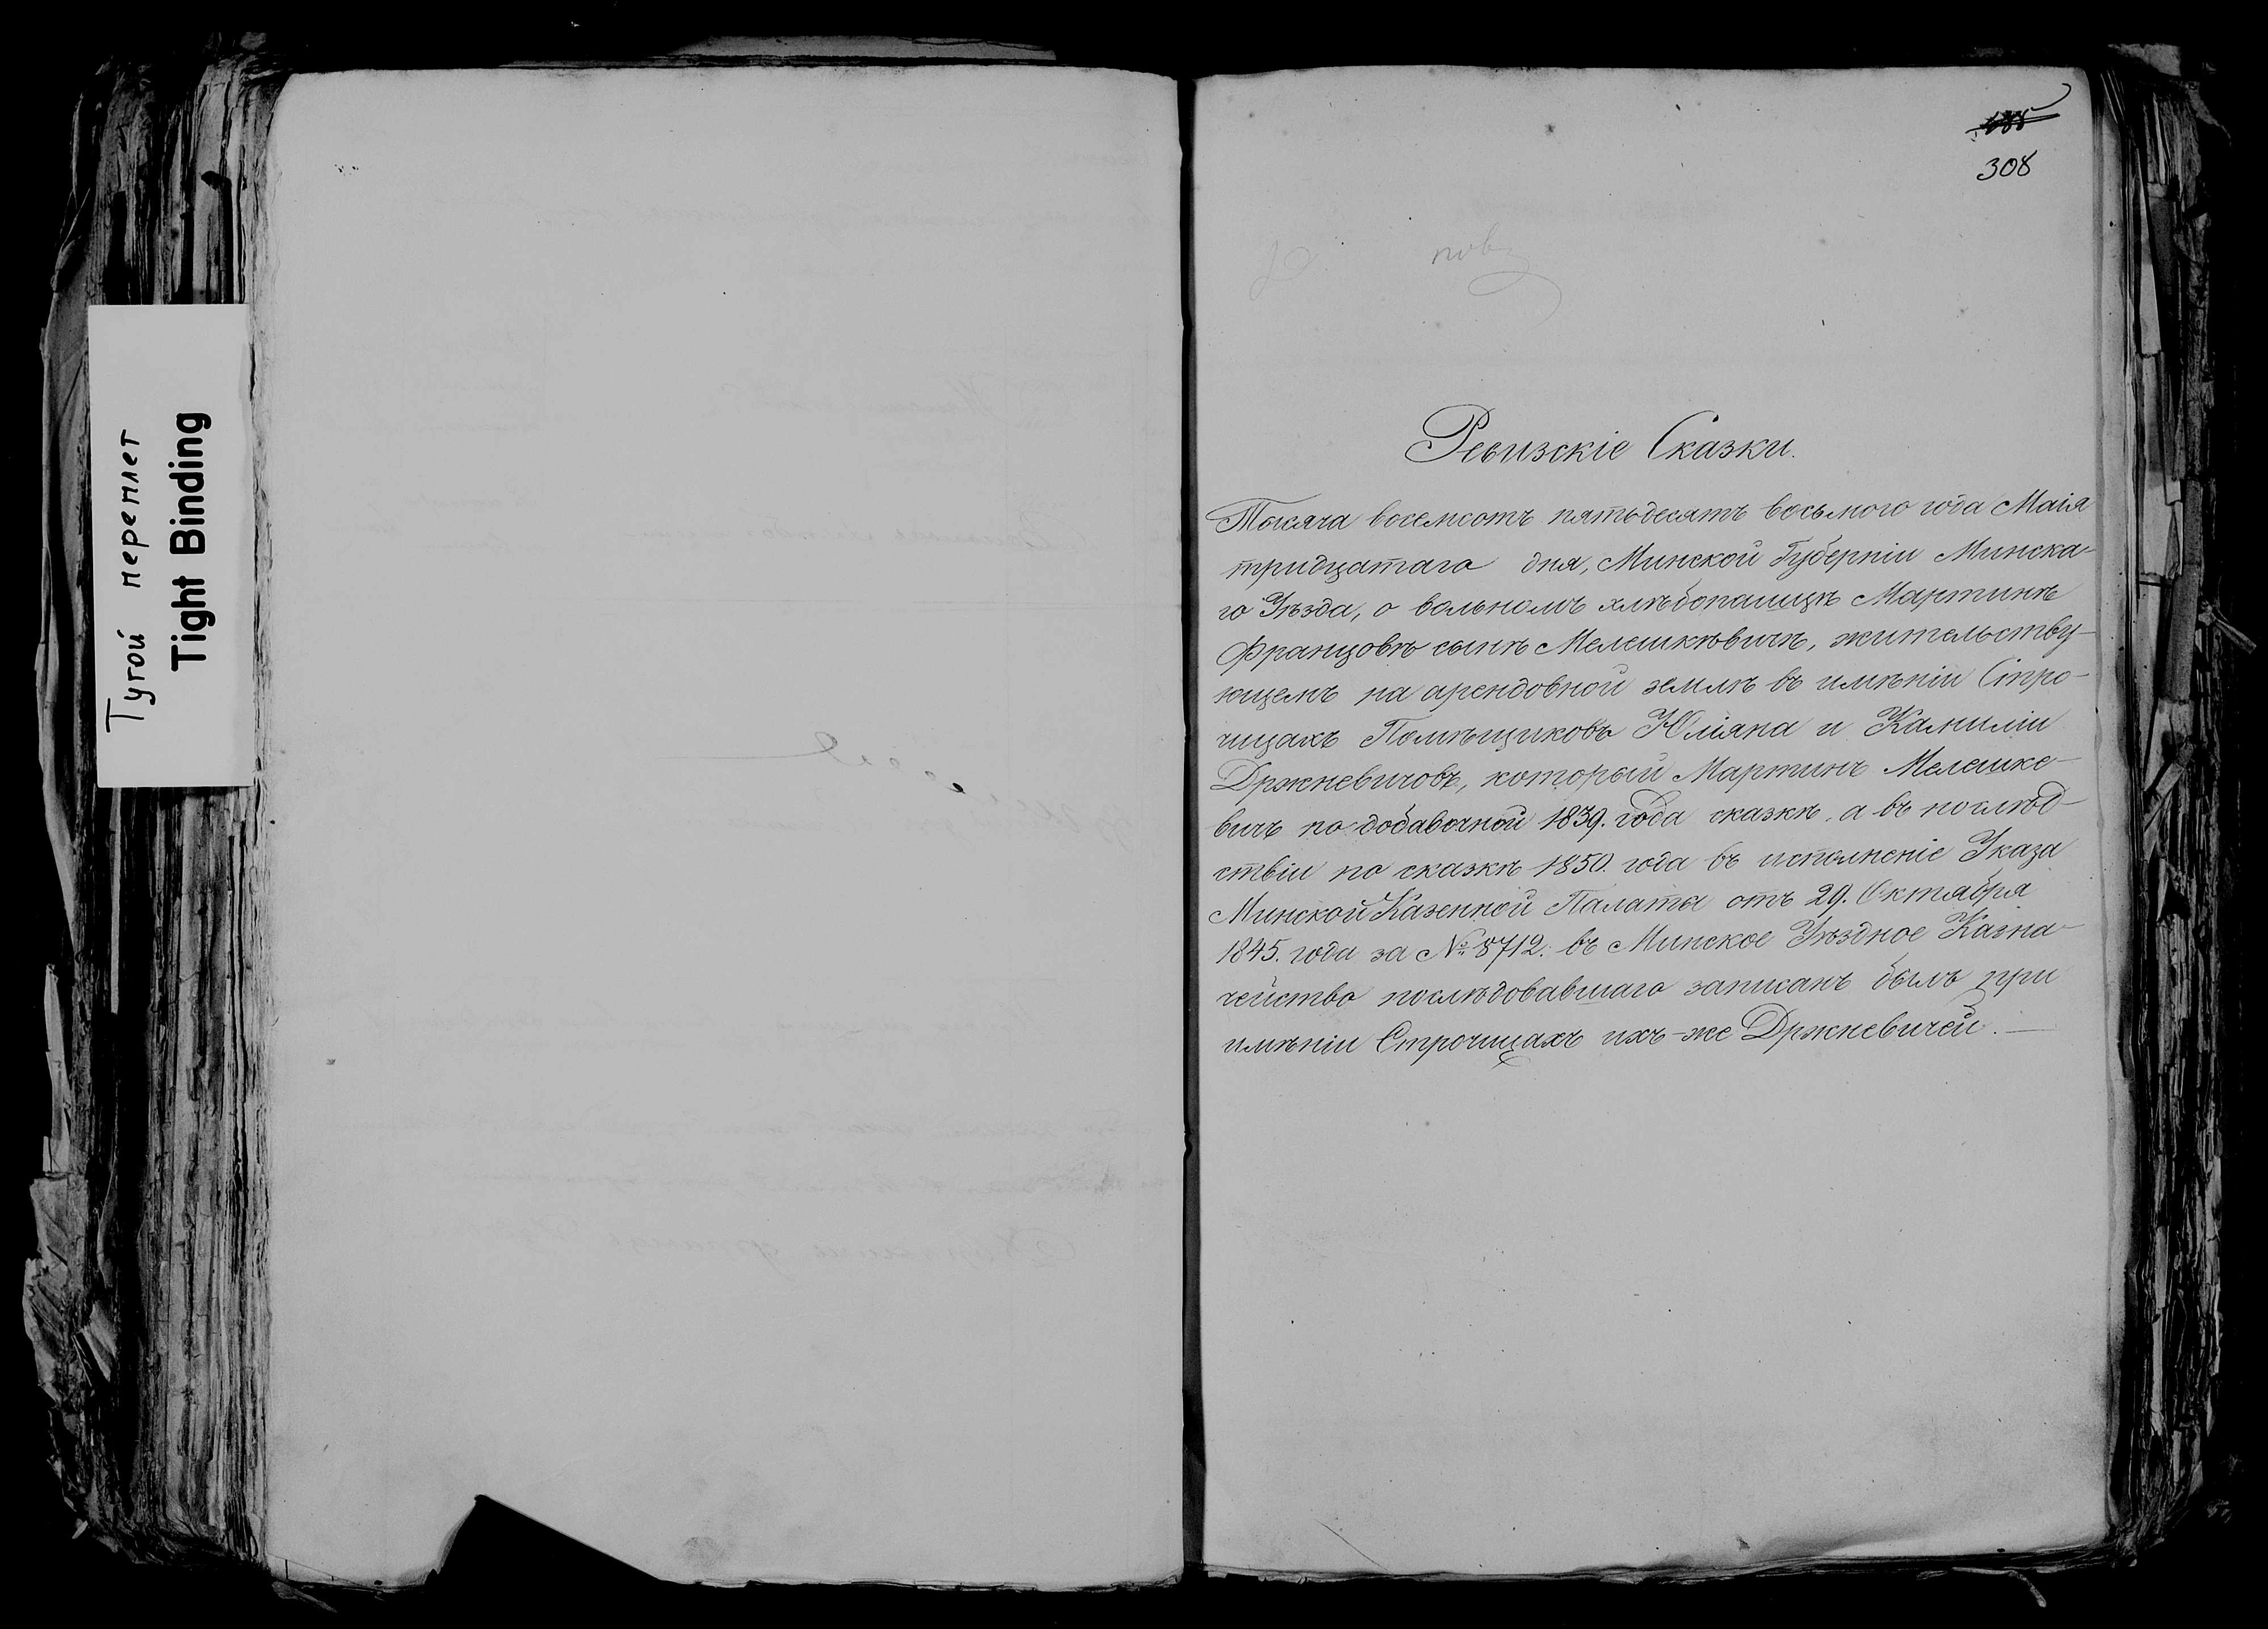 Тугой переплет
Tight Binding
308
Ревизскіе Сказки.
Тысяча восемсотъ пятьдесятъ восьмого года Маія
тридцатаго дня, Минской Губерніи Минска-
го Уѣзда, о вольномъ хлѣбопашцѣ Мартинѣ
Францовѣ сынѣ Мелешкѣвичѣ, жительству-
ющемъ на арендовной землѣ въ имѣніи Стро-
чицахъ Помѣщиковъ Юліяна и Камиліи
Држневичовъ, который Мартинъ Мелешке-
вичъ по добавочной 1839. года сказкѣ, а въ послѣд-
ствіи по сказкѣ 1850. года въ исполненіе Указа
Минской Казенной Палаты отъ 29. Октября
1845. года за № 8712. въ Минское Уѣздное Казна-
чейство послѣдовавшаго записанъ былъ при
имѣніи Строчицахъ ихъ-же Држневичей.